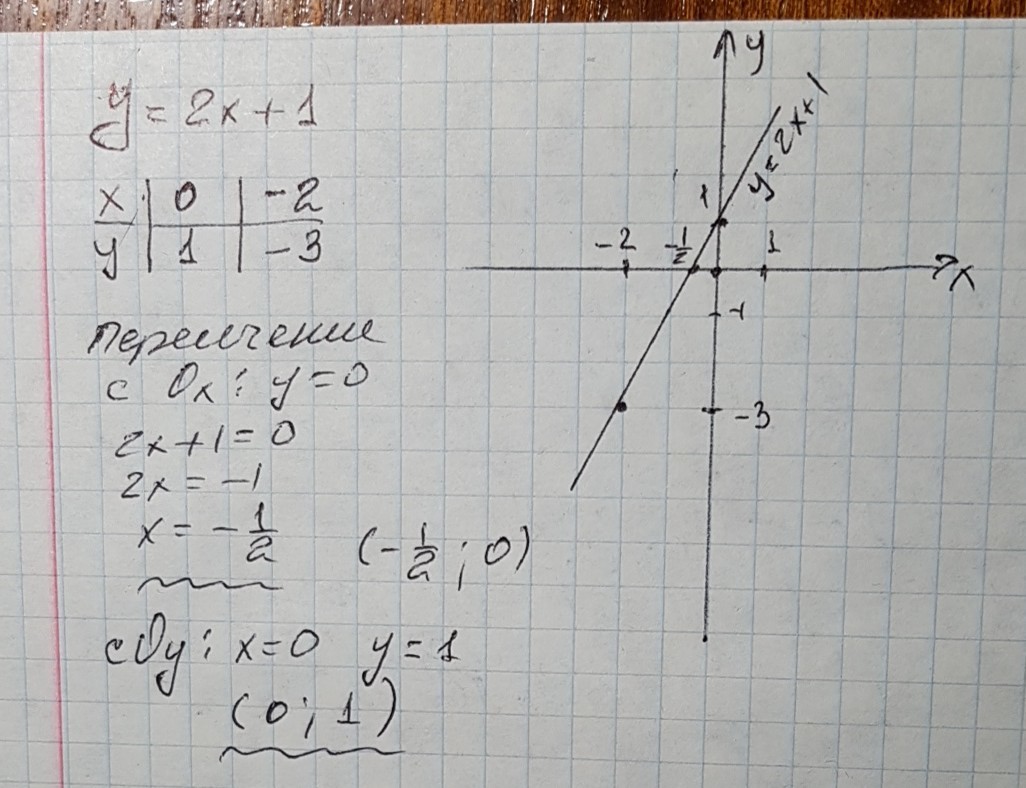 y = 2x + 1
x | 0 | -2
y | 1 | -3
Пересечение
с Ox : y = 0
2x + 1 = 0
2x = -1
x = -1/2 (-1/2 ; 0)
с Oy : x = 0 y = 1
(0 ; 1)
y
y = 2x + 1
1
-2 -1/2 1
x
-1
-3